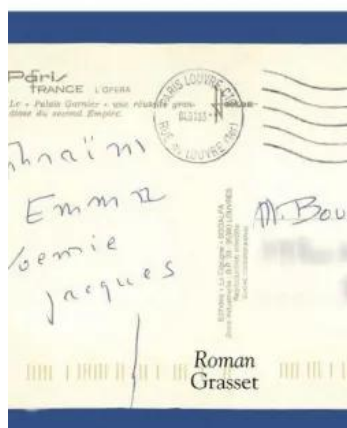 Paris
FRANCE L'OPERA
Le « Palais Garnier » une réussite gran-
diose du second Empire.
PARIS LOUVRE CTC
RUE DU LOUVRE (1er)
phraïm
Emma
Noémie
Jacques
M. Bou
Roman
Grasset